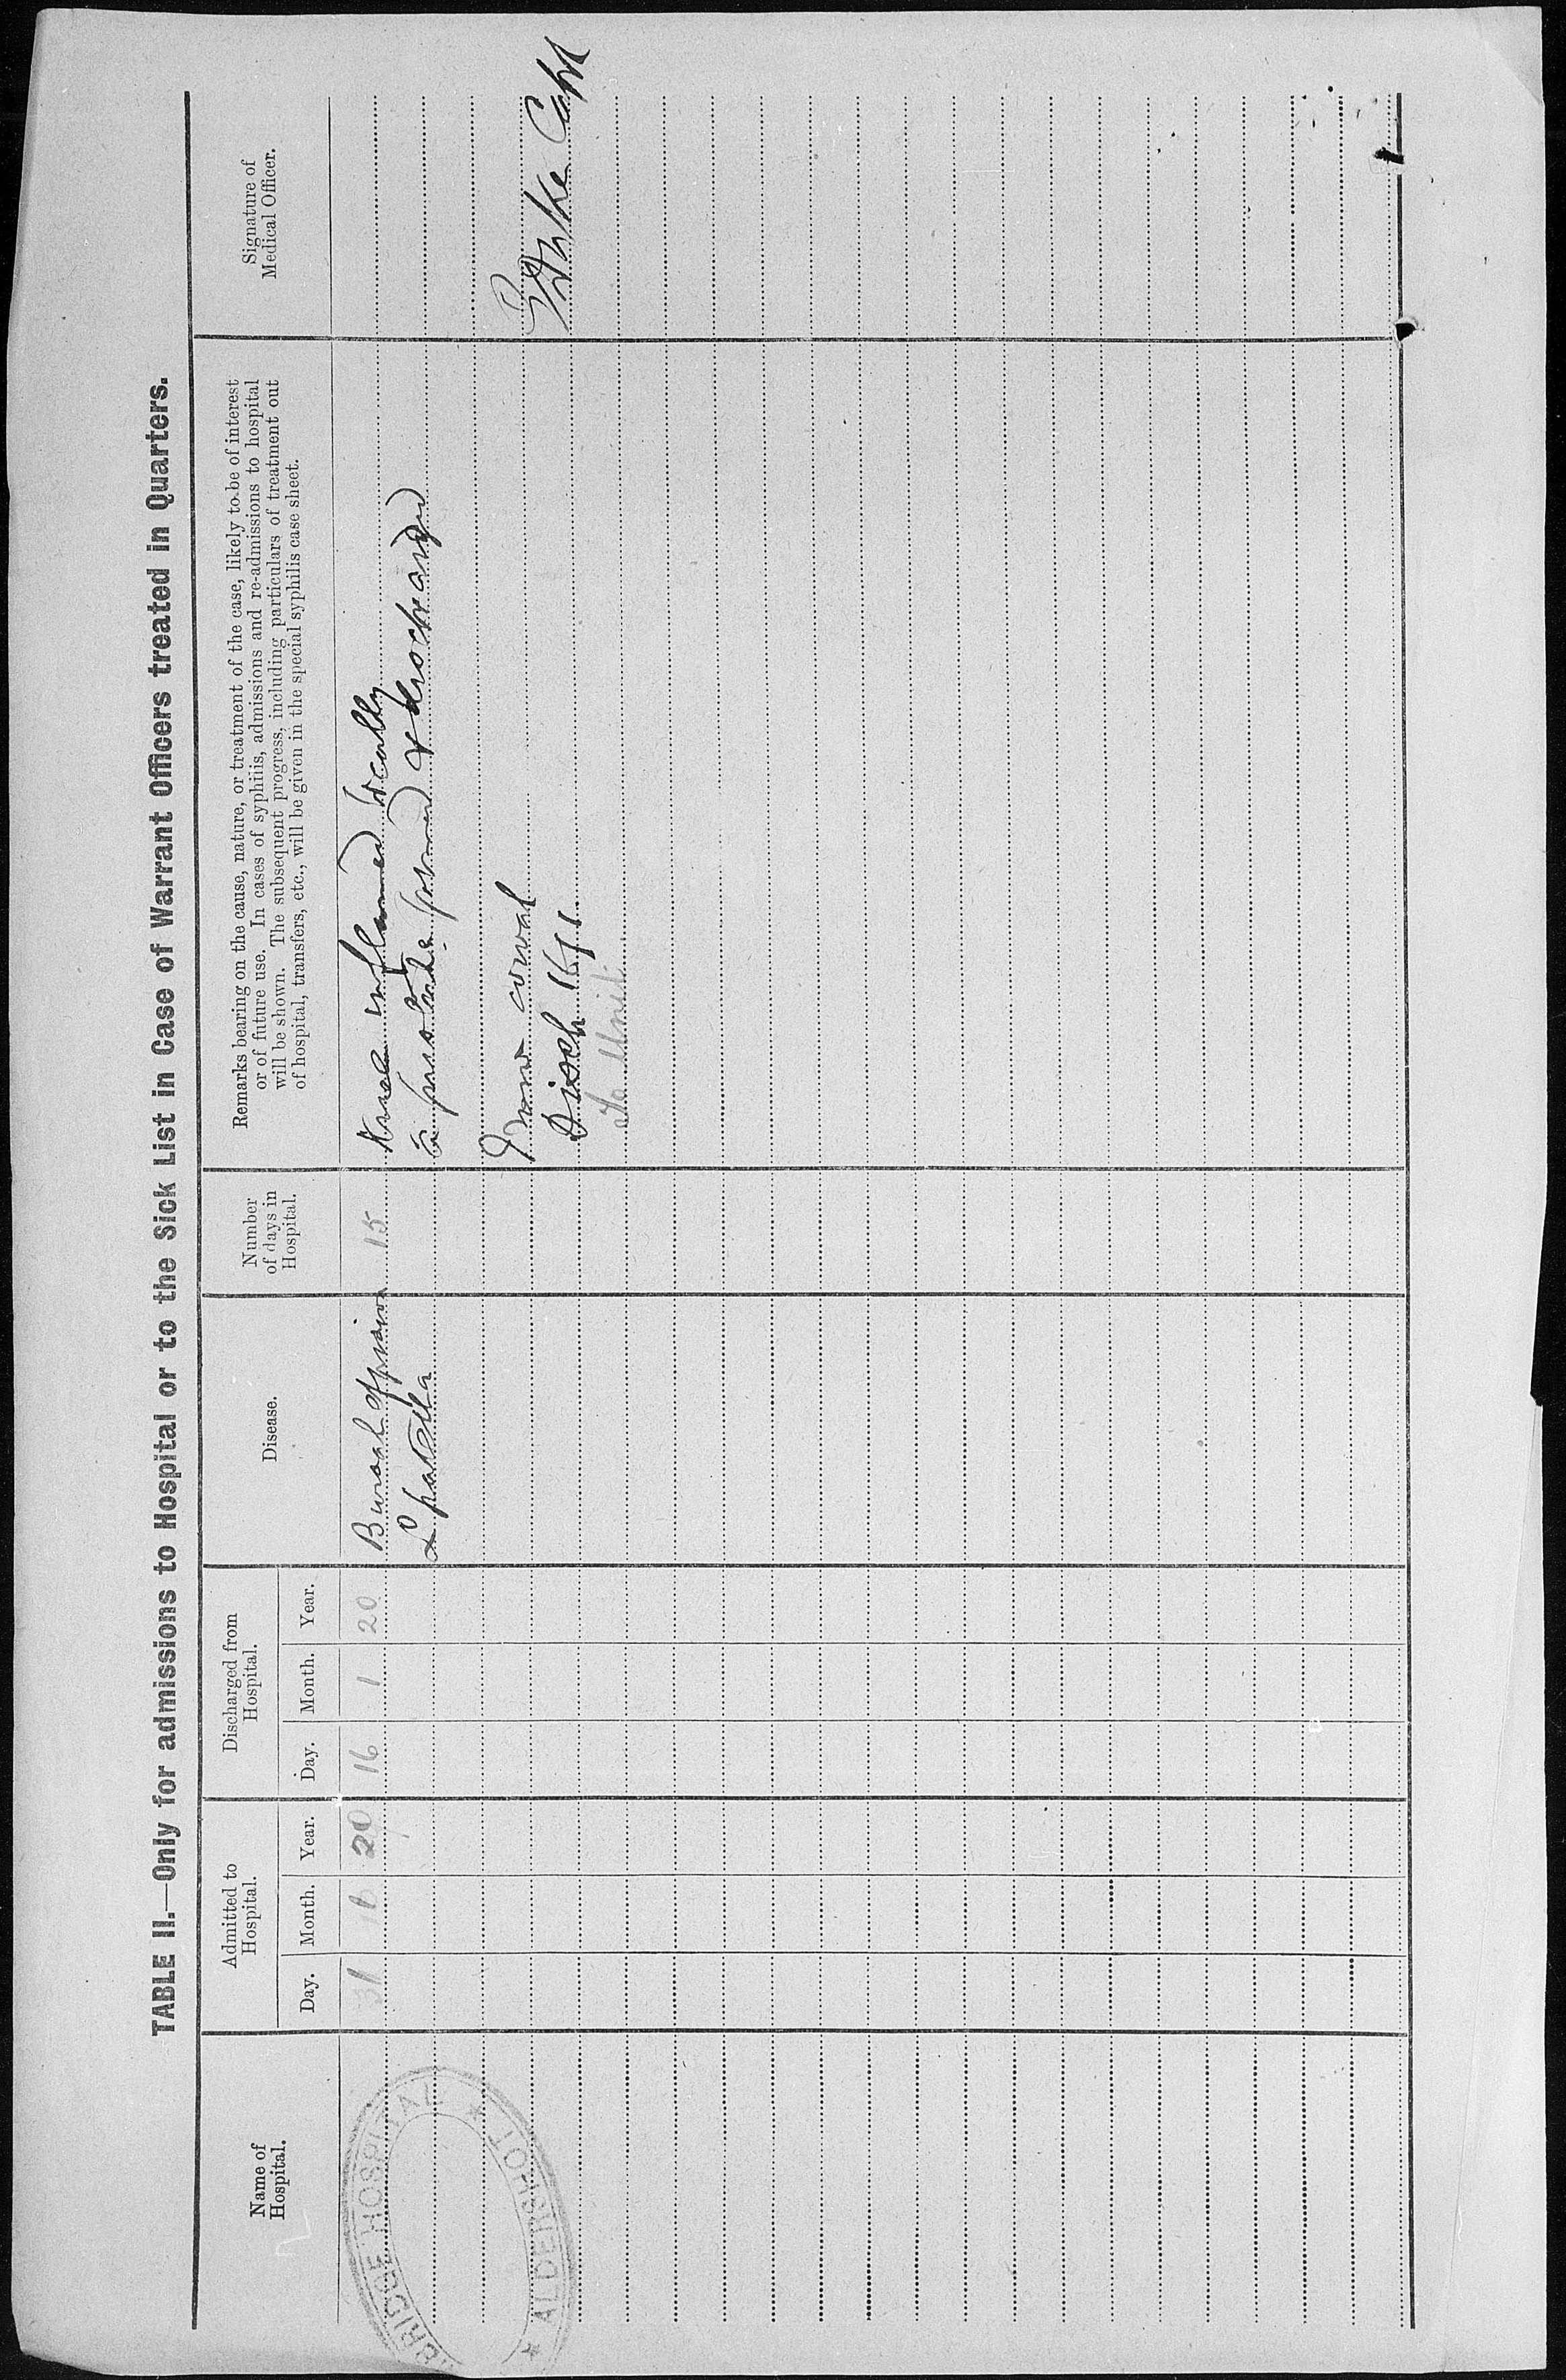 TABLE II.—Only for admissions to Hospital or to the Sick List in Case of Warrant Officers treated in Quarters.
Name of
Hospital.
Admitted to
Hospital.
Day. Month. Year.
Discharged from
Hospital.
Day. Month. Year.
Disease.
Number
of days in
Hospital.
Remarks bearing on the cause, nature, or treatment of the case, likely to be of interest
or of future use. In cases of syphilis, admissions and re-admissions to hospital
will be shown. The subsequent progress, including particulars of treatment out
of hospital, transfers, etc., will be given in the special syphilis case sheet.
Signature of
Medical Officer.
BRIDGE HOSPITAL
★ ALDERSHOT ★
31 20 16 1 20
Bursal
L patella
15
Knee inflamed locally
pus formed & discharged
Now conval
Disch 16/1
To Unit
Capt